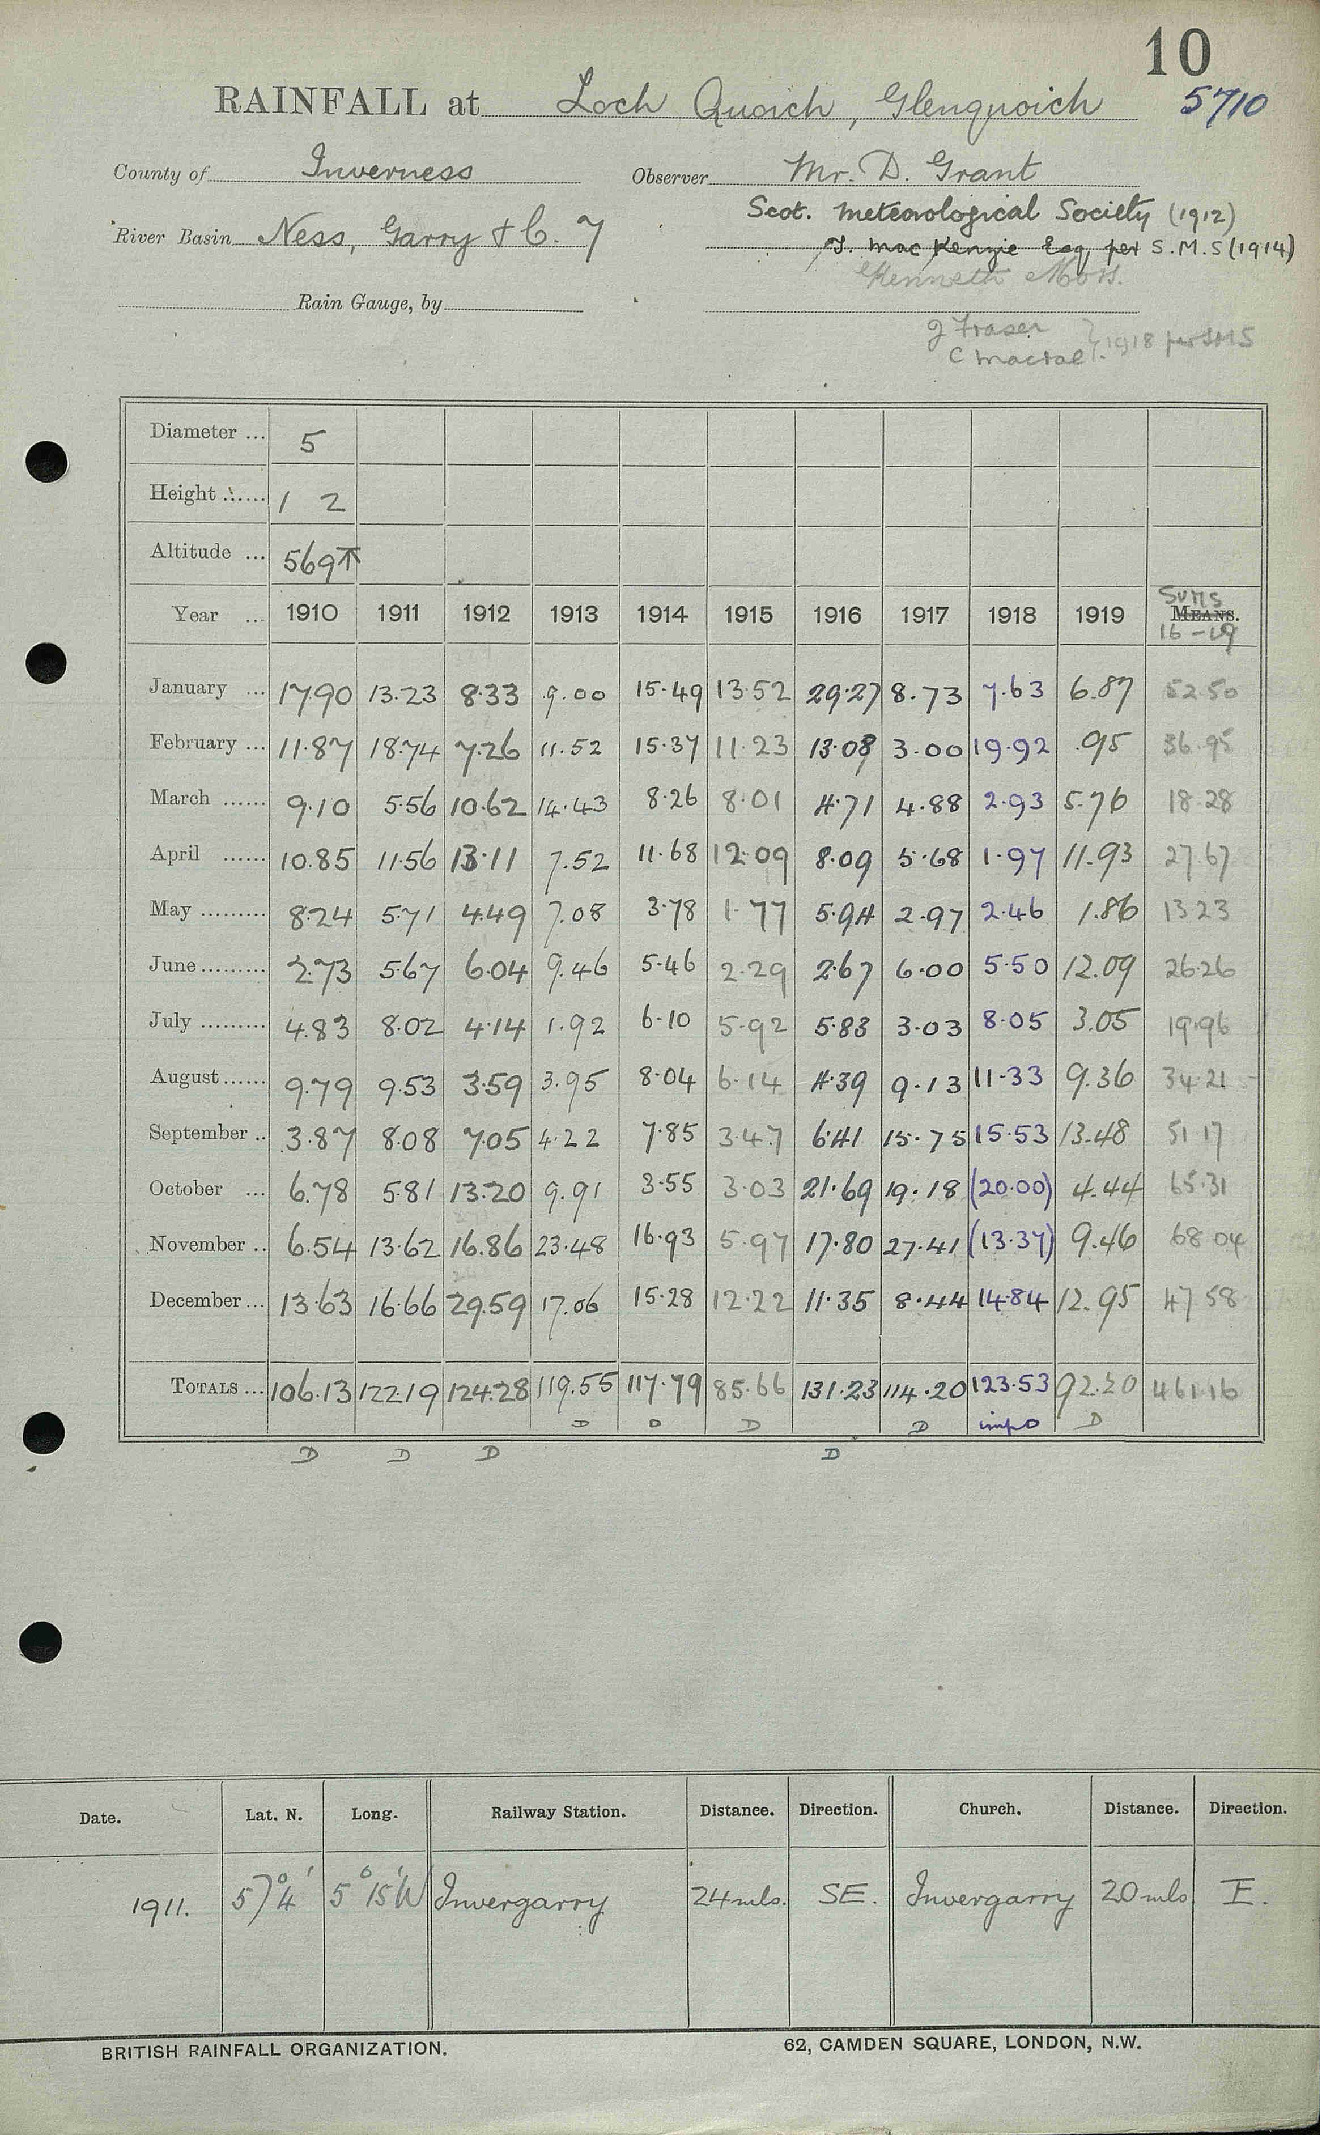 10
RAINFALL at Loch Quoich, Glenquoich 5710
County of Inverness Observer Mr. D. Grant
Scot. Meteorological Society (1912)
River Basin Ness, Garry & C. 7
J. Mac Kenzie Esq, per S.M.S (1914)
Kenneth
Rain Gauge, by
J Fraser
C 1918 per SMS
Diameter ... 5
Height ...... 1 2
Altitude ... 569
Year ... 1910 1911 1912 1913 1914 1915 1916 1917 1918 1919 Sums MEANS. 16-19
January ... 17.90 13.23 8.33 9.00 15.49 13.52 29.27 8.73 7.63 6.87 52.50
February ... 11.87 18.74 7.26 11.52 15.37 11.23 13.08 3.00 19.92 .95 36.95
March ...... 9.10 5.56 10.62 14.43 8.26 8.01 4.71 4.88 2.93 5.76 18.28
April ...... 10.85 11.56 13.11 7.52 11.68 12.09 8.09 5.68 1.97 11.93 27.67
May ......... 8.24 5.71 4.49 7.08 3.78 1.77 5.94 2.97 2.46 1.86 13.23
June ......... 2.73 5.67 6.04 9.46 5.46 2.29 2.67 6.00 5.50 12.09 26.26
July ......... 4.83 8.02 4.14 1.92 6.10 5.92 5.83 3.03 8.05 3.05 19.96
August ...... 9.79 9.53 3.59 3.95 8.04 6.14 4.39 9.13 11.33 9.36 34.21
September .. 3.87 8.08 7.05 4.22 7.85 3.47 6.41 15.75 15.53 13.48 51.17
October ... 6.78 5.81 13.20 9.91 3.55 3.03 21.69 19.18 (20.00) 4.44 65.31
November .. 6.54 13.62 16.86 23.48 16.93 5.97 17.80 27.41 (13.37) 9.46 68.04
December ... 13.63 16.66 29.59 17.06 15.28 12.22 11.35 8.44 14.84 12.95 47.58
TOTALS ... 106.13 122.19 124.28 119.55 117.79 85.66 131.23 114.20 123.53 92.20 461.16
D D D D D
D D D D
Date. Lat. N. Long. Railway Station. Distance. Direction. Church. Distance. Direction.
1911. 57°4' 5°15'W Invergarry 24 mls. SE. Invergarry 20 mls E.
BRITISH RAINFALL ORGANIZATION. 62, CAMDEN SQUARE, LONDON, N.W.